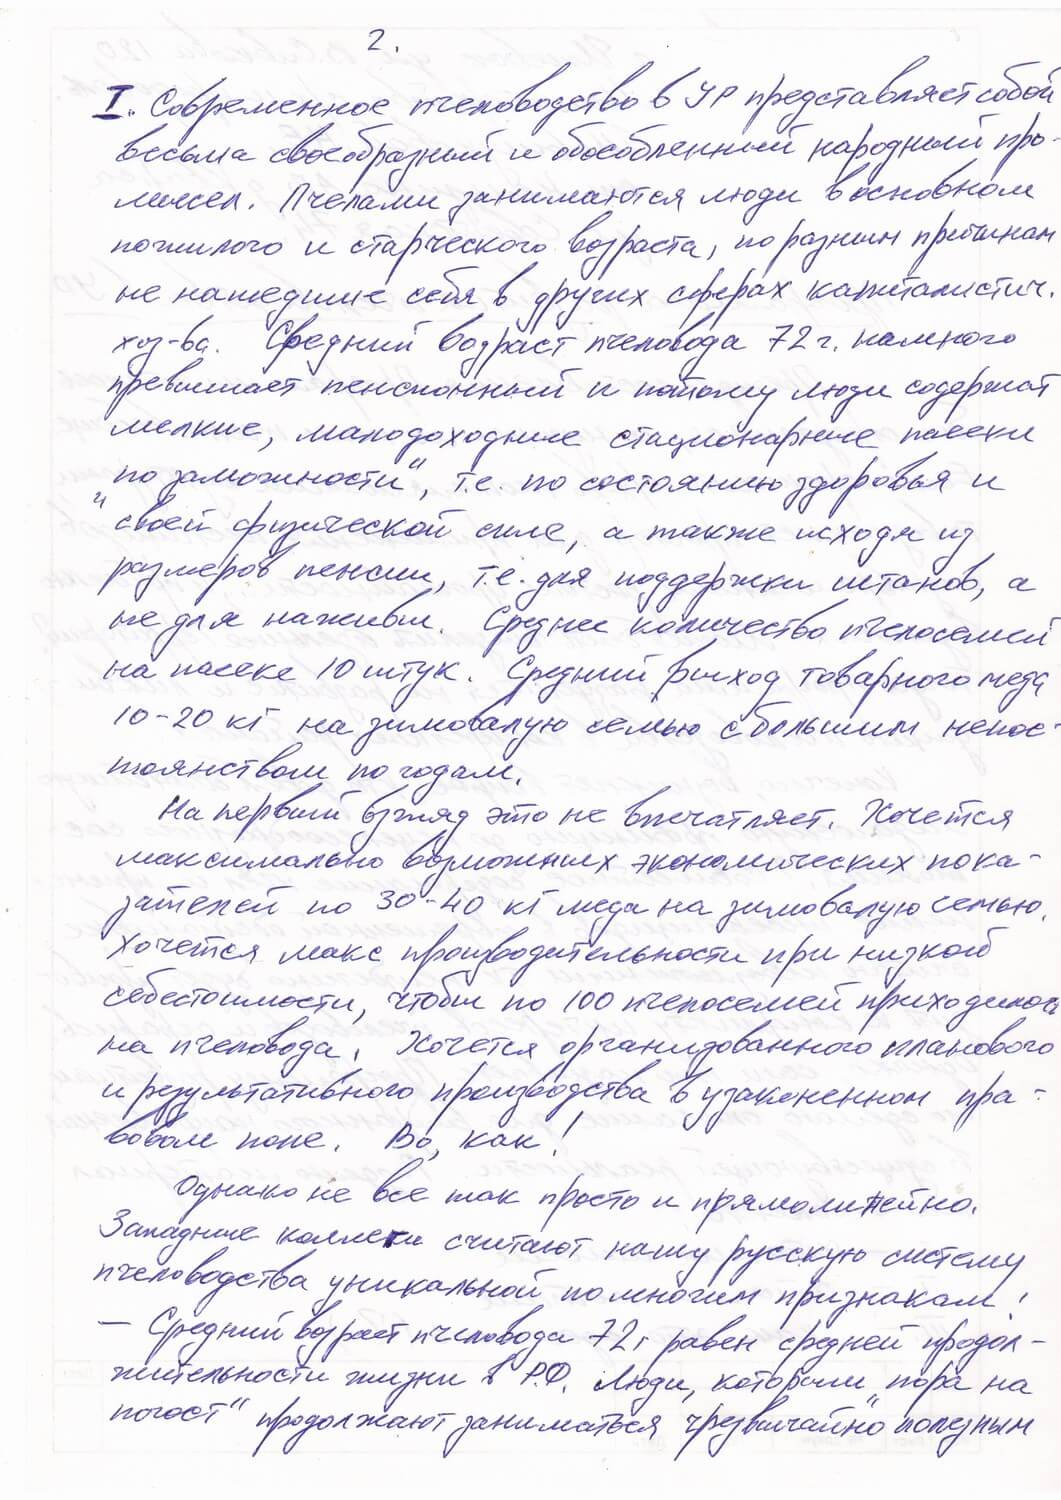 2.
I. Современное пчеловодство в УР представляет собой
весьма своеобразный и обособленный народный про-
мысел. Пчелами занимаются люди в основном
пожилого и старческого возраста, по разным причинам
не нашедшие себя в других сферах капиталистич.
хоз-ва. Средний возраст пчеловода 72 г. намного
превышает пенсионный и потому люди содержат
мелкие, малодоходные стационарные пасеки
„по заможности“, т.е. по состоянию здоровья и
своей физической силе, а также исходя из
размеров пенсии, т.е. для поддержки штанов, а
не для наживы. Среднее количество пчелосемей
на пасеке 10 штук. Средний выход товарного меда
10-20 кг на зимовалую семью с большим непос-
тоянством по годам.
На первый взгляд это не впечатляет. Хочется
максимально возможных экономических пока-
зателей по 30-40 кг меда на зимовалую семью.
Хочется макс производительности при низкой
себестоимости, чтобы по 100 пчелосемей приходилось
на пчеловода. Хочется организованного планового
и результативного производства в узаконенном пра-
вовом поле. Во, как!
Однако не все так просто и прямолинейно.
Западные коллеги считают нашу русскую систему
пчеловодства уникальной по многим признакам!
— Средний возраст пчеловода 72 г равен средней продол-
жительности жизни в Р.Ф. Люди, которым „пора на
погост“ продолжают заниматься чрезвычайно полезным